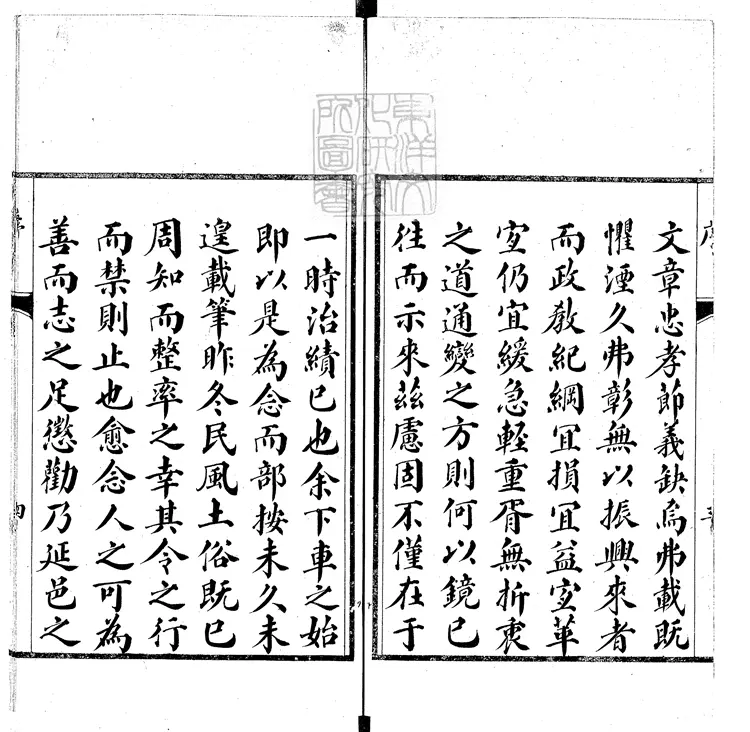 文章忠孝節義缺焉弗載既
懼湮久弗彰無以振興來者
而政敎紀綱冝損冝益冝革
冝仍宜緩急輕重胥無折衷
之道通變之方則何以鏡已
往而示來茲慮固不僅在于
一時治績已也余下車之始
即以是為念而部按未久未
遑載筆昨冬民風土俗既已
周知而整率之幸其令之行
而禁則止也愈念人之可為
善而志之足懲勸乃延邑之
東洋文化研究所圖書